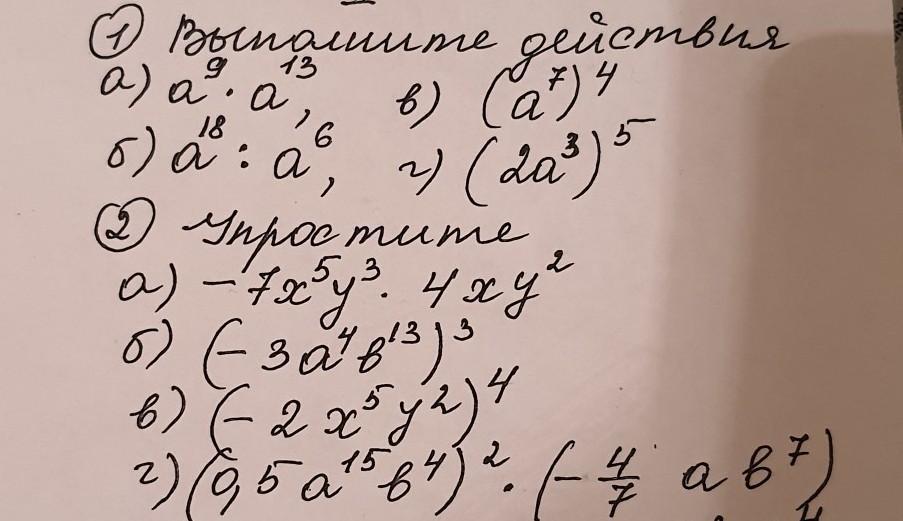 ① Выполните действия
а) a⁹ · a¹³, в) (a⁷)⁴
б) a¹⁸ : a⁶, г) (2a³)⁵
② Упростите
а) −7x⁵y³ · 4xy²
б) (−3a⁴b¹³)³
в) (−2x⁵y²)⁴
г) (0,5a¹⁵b⁴)² · (−4/7 ab⁷)